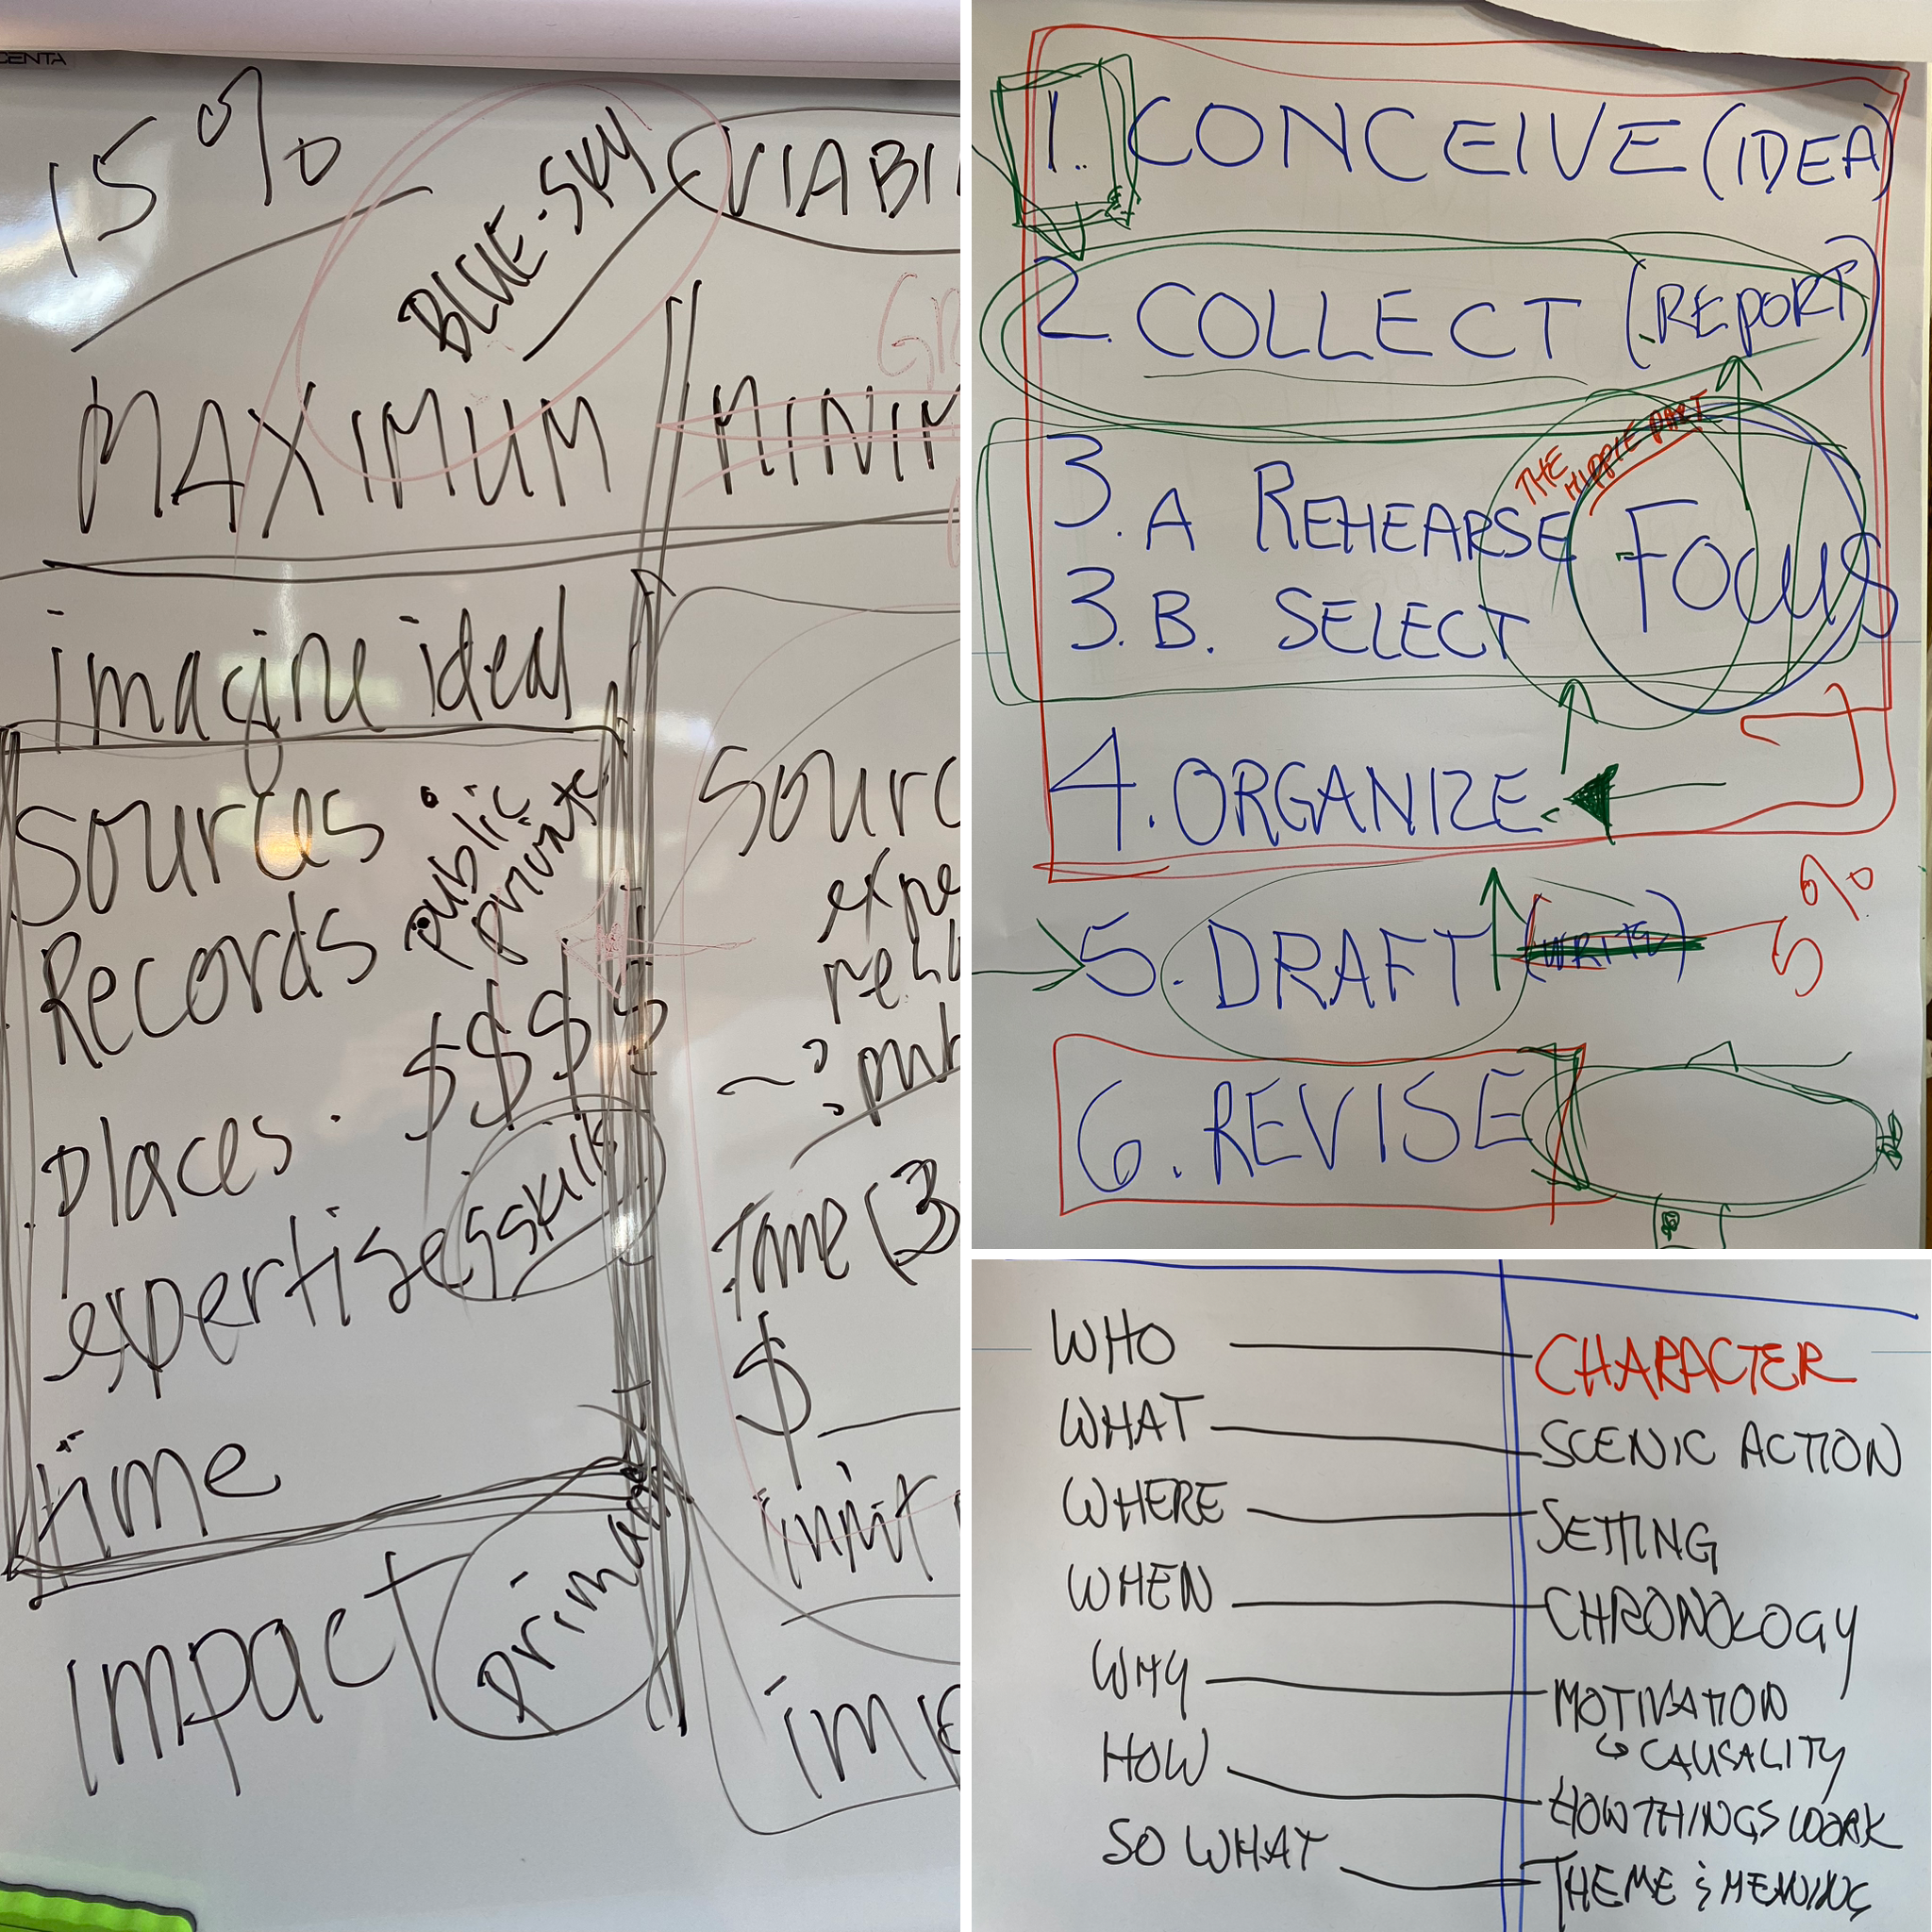 CENTA
15%
BLUE-SKY
VIABI
MAXIMUM
MINIM
imagine ideal
Sources
public
private
Records
$$$$
places
expertise
skills
time
impact
primary
Sourc
expe
Time (3
$
imp
1. CONCEIVE (IDEA)
2. COLLECT (REPORT)
THE HIPPIE PART
3.A REHEARSE
FOCUS
3.B. SELECT
4. ORGANIZE
5. DRAFT (WRITE)
5%
6. REVISE
WHO CHARACTER
WHAT SCENIC ACTION
WHERE SETTING
WHEN CHRONOLOGY
WHY MOTIVATION
CAUSALITY
HOW HOW THINGS WORK
SO WHAT THEME & MEANING